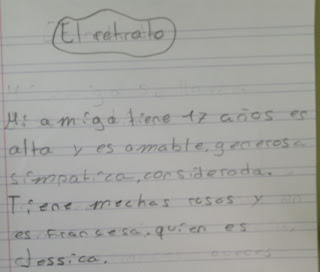 El retrato
Mi amiga tiene 17 años es
alta y es amable, generosa
simpatica, considerada.
Tiene mechas rosas y
es francesa, quien es
Jessica.